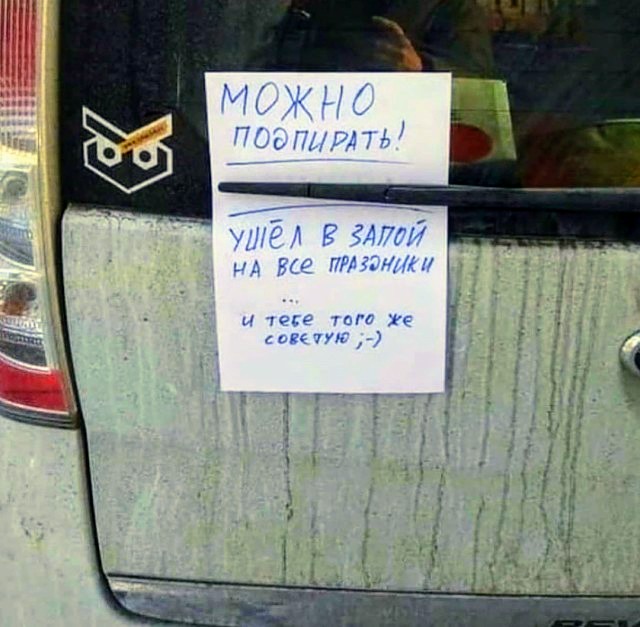 МОЖНО
ПОДПИРАТЬ!
УШЁЛ В ЗАПОЙ
НА ВСЕ ПРАЗДНИКИ
...
И ТЕБЕ ТОГО ЖЕ
СОВЕТУЮ ;-)